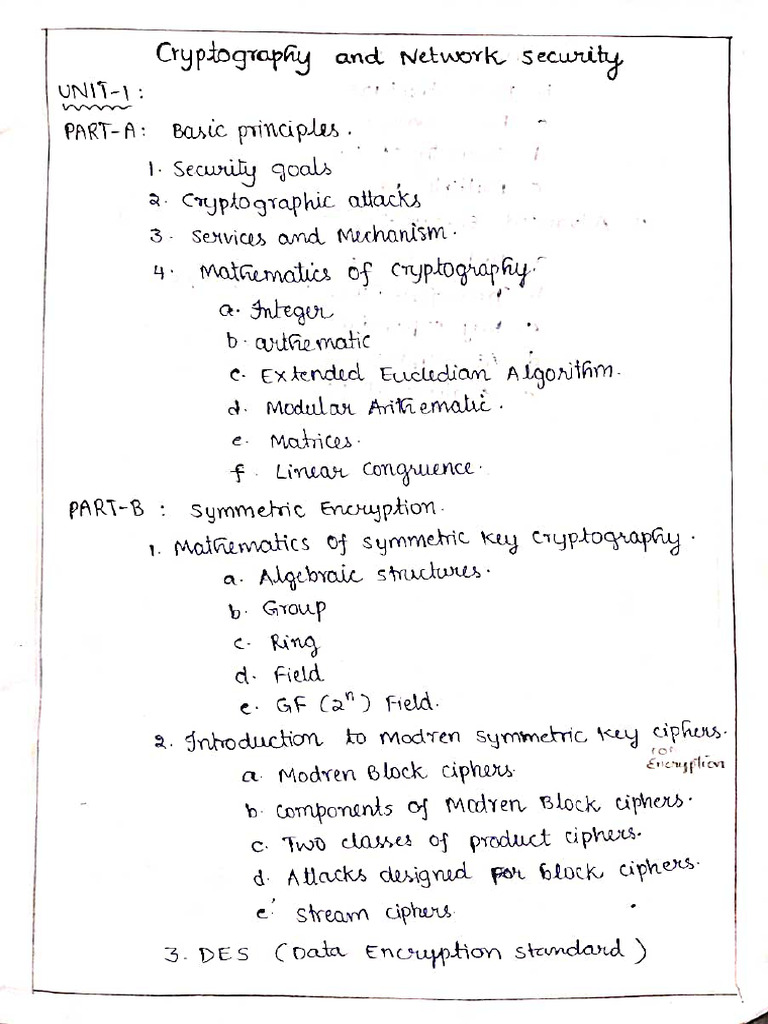 Cryptography and Network security
UNIT-1:
PART-A: Basic principles.
1. Security goals
2. Cryptographic attacks
3. Services and Mechanism.
4. Mathematics of cryptography.
a. Integer
b. arthematic
c. Extended Eucledian Algorithm.
d. Modular Arithematic.
e. Matrices.
f. Linear Congruence.
PART-B: Symmetric Encryption.
1. Mathematics of symmetric key cryptography.
a. Algebraic structures.
b. Group
c. Ring
d. Field
e. GF (2ⁿ) Field.
2. Introduction to Modren symmetric key ciphers.
(or)
Encryption
a. Modren Block ciphers.
b. components of Modren Block ciphers.
c. Two classes of product ciphers.
d. Attacks designed for block ciphers.
e. stream ciphers.
3. DES (Data Encryption standard)